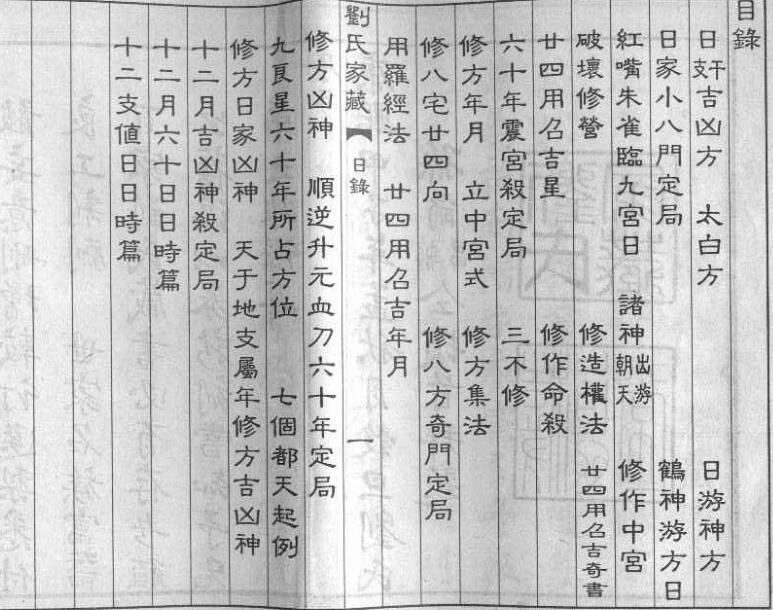 目錄
日干支吉凶方　太白方　日游神方
日家小八門定局　鶴神游方日
紅嘴朱雀臨九宮日　諸神出游朝天　修作中宮
破壞修營　修造權法　廿四用召吉奇書
廿四用召吉星　修作命殺
六十年震宮殺定局　三不修
修方年月　立中宮式　修方集法
修八宅廿四向　修八方奇門定局
用羅經法　廿四用召吉年月
劉氏家藏　目錄　一
修方凶神　順逆升元血刀六十年定局
九良星六十年所占方位　七個都天起例
修方日家凶神　天干地支屬年修方吉凶神
十二月吉凶神殺定局
十二月六十日日時篇
十二支值日日時篇